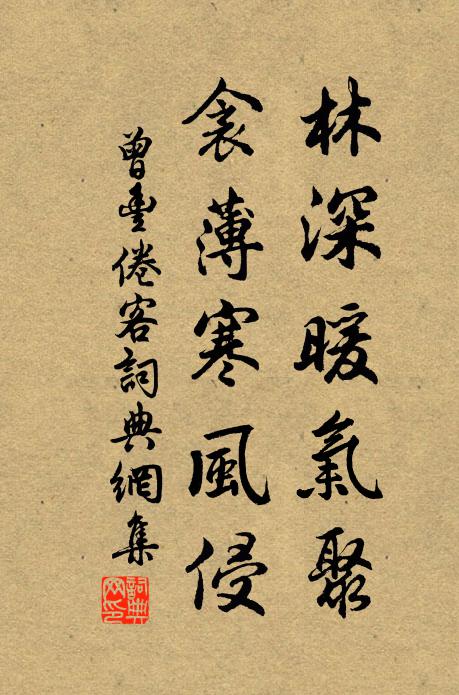 林深暖氣聚
衾薄寒風侵
曾豐倦客詞典網集
詞典网印